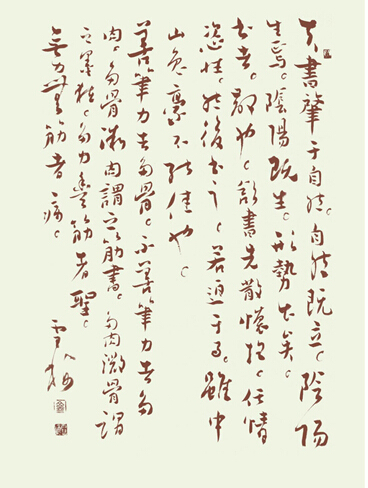 夫書肇于自然。自然既立。陰陽
生焉。陰陽既生。形勢出矣。
书者。散也。欲書先散懷抱。任情
恣性。然後书之。若迫于事。雖中
山兔豪不能佳也。
善筆力者多骨。不善筆力者多
肉。多骨微肉謂之筋書。多肉微骨謂
之墨猪。多力豐筋者聖。
無力無筋者病。